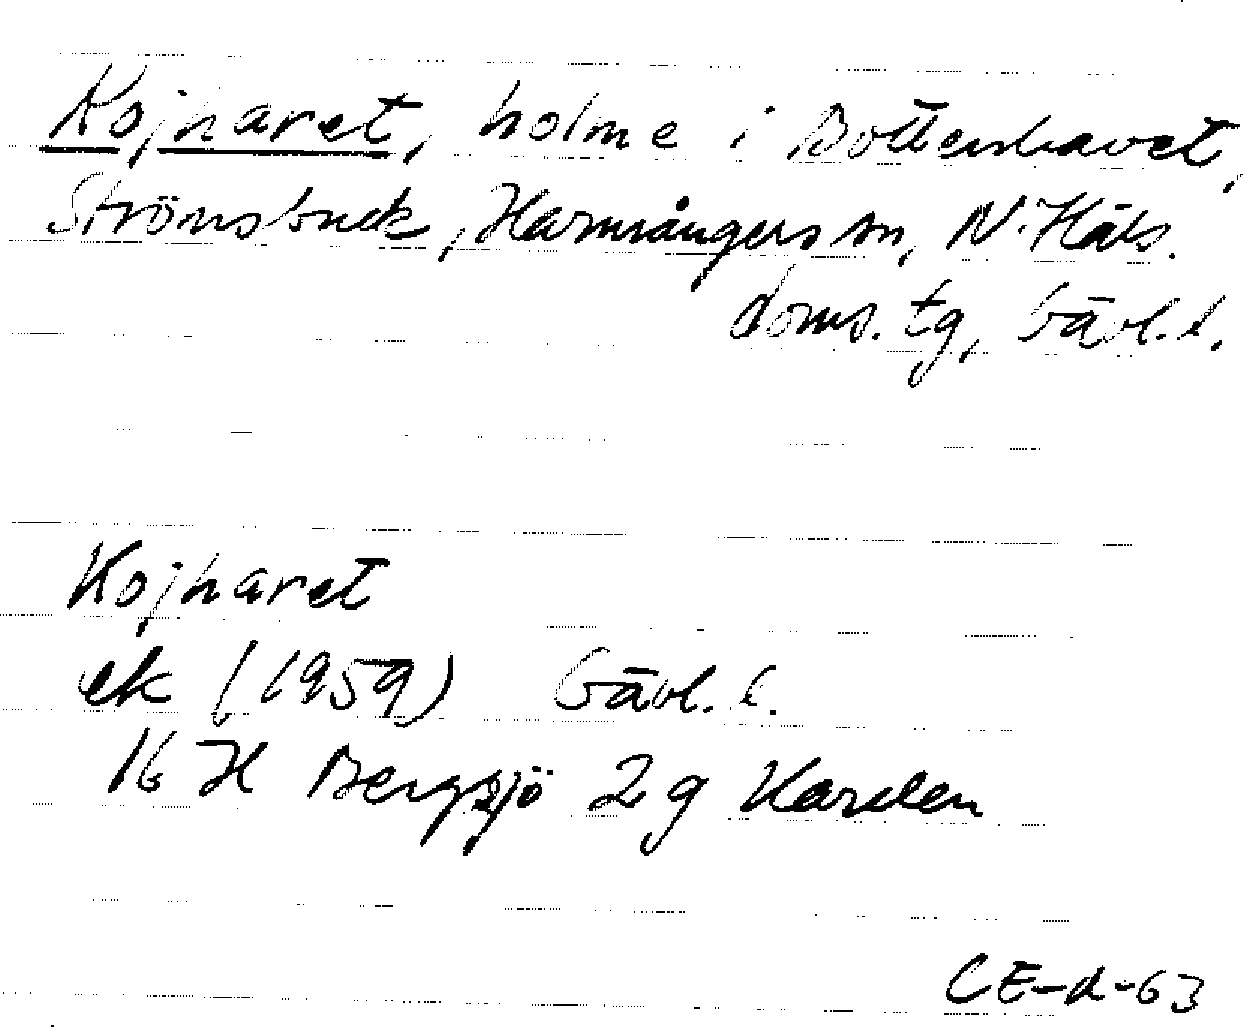 Kojharet, holme i Bottenhavet,
Strömsbruk, Harmångers sn, N. Häls.
doms. tg, Gävl. l.
Kojharet
ek (1959) Gävl. l.
16 H Bergsjö 2 g
CE-d-63